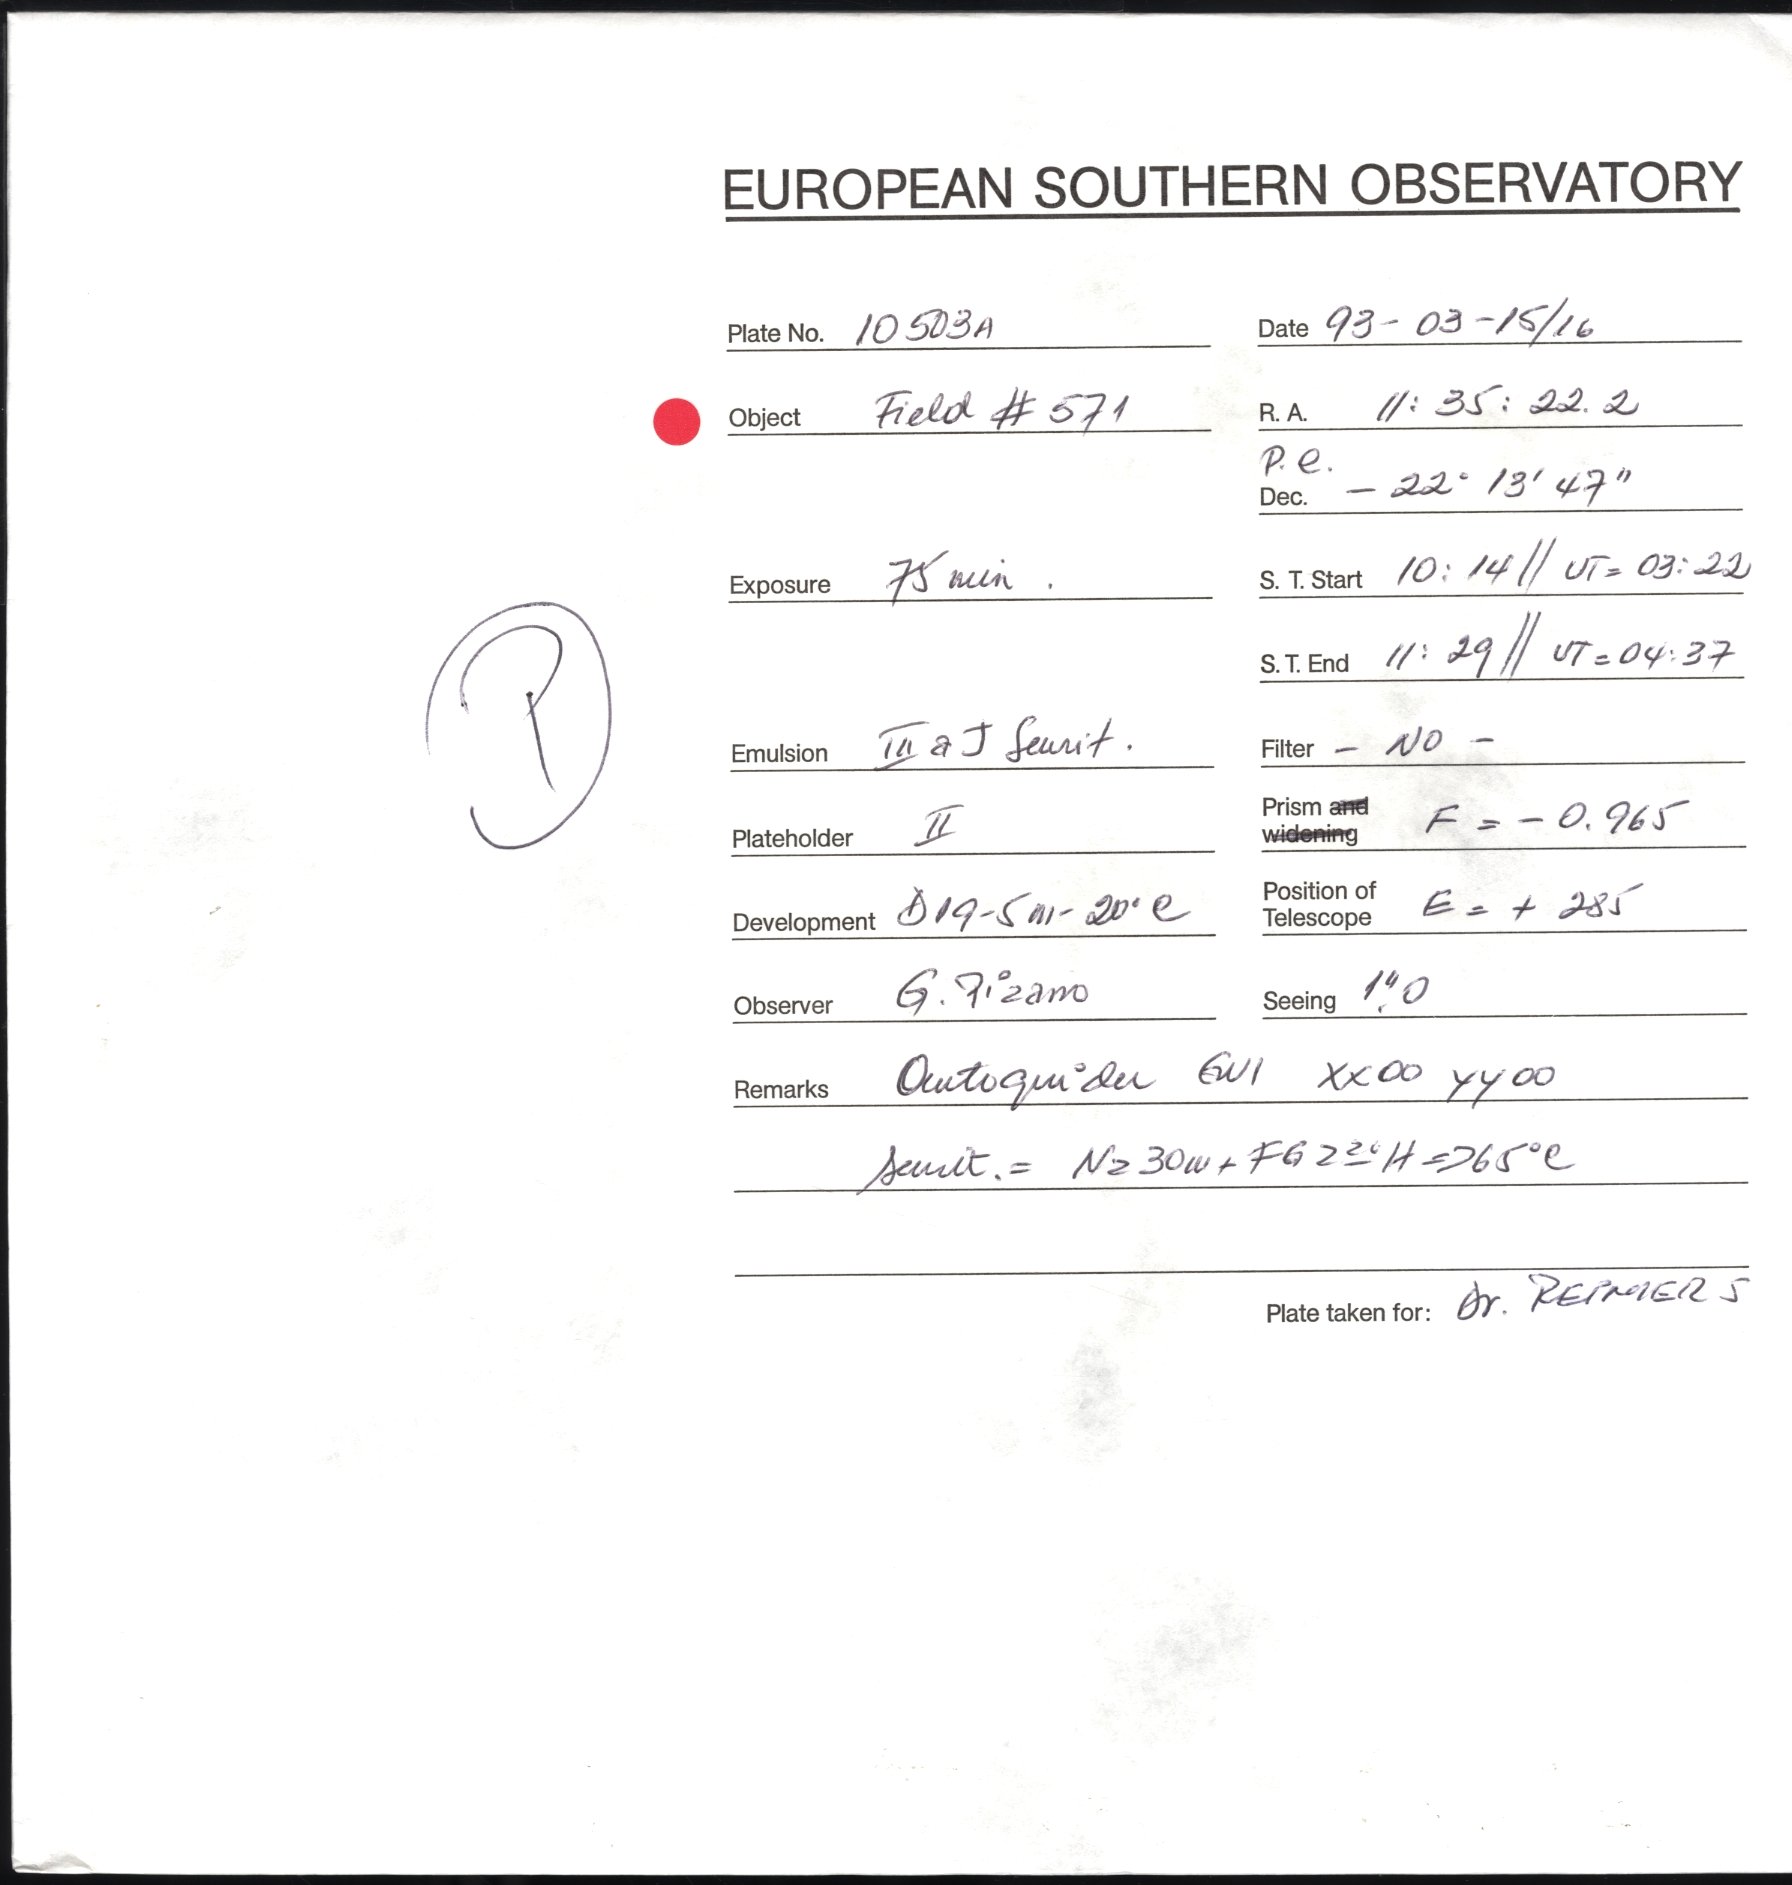 EUROPEAN SOUTHERN OBSERVATORY
Plate No. 10503A Date 93-03-15/16
Object Field # 571 R. A. 11: 35: 22.2
P.e.
Dec. - 22° 13' 47"
Exposure 75 min. S. T. Start 10: 14 // UT= 03:22
S. T. End 11: 29 // UT=04:37
P
Emulsion III a J Sensit. Filter - NO -
Plateholder II Prism and widening F = - 0.965
Development D19-5m-20°C Position of Telescope E = + 285
Observer G. Pizarro Seeing 1".0
Remarks Autoguider GW1 XX00 YY00
Sensit. = N2 30m + FG 2 H => 65°C
Plate taken for: Dr. REIMERS